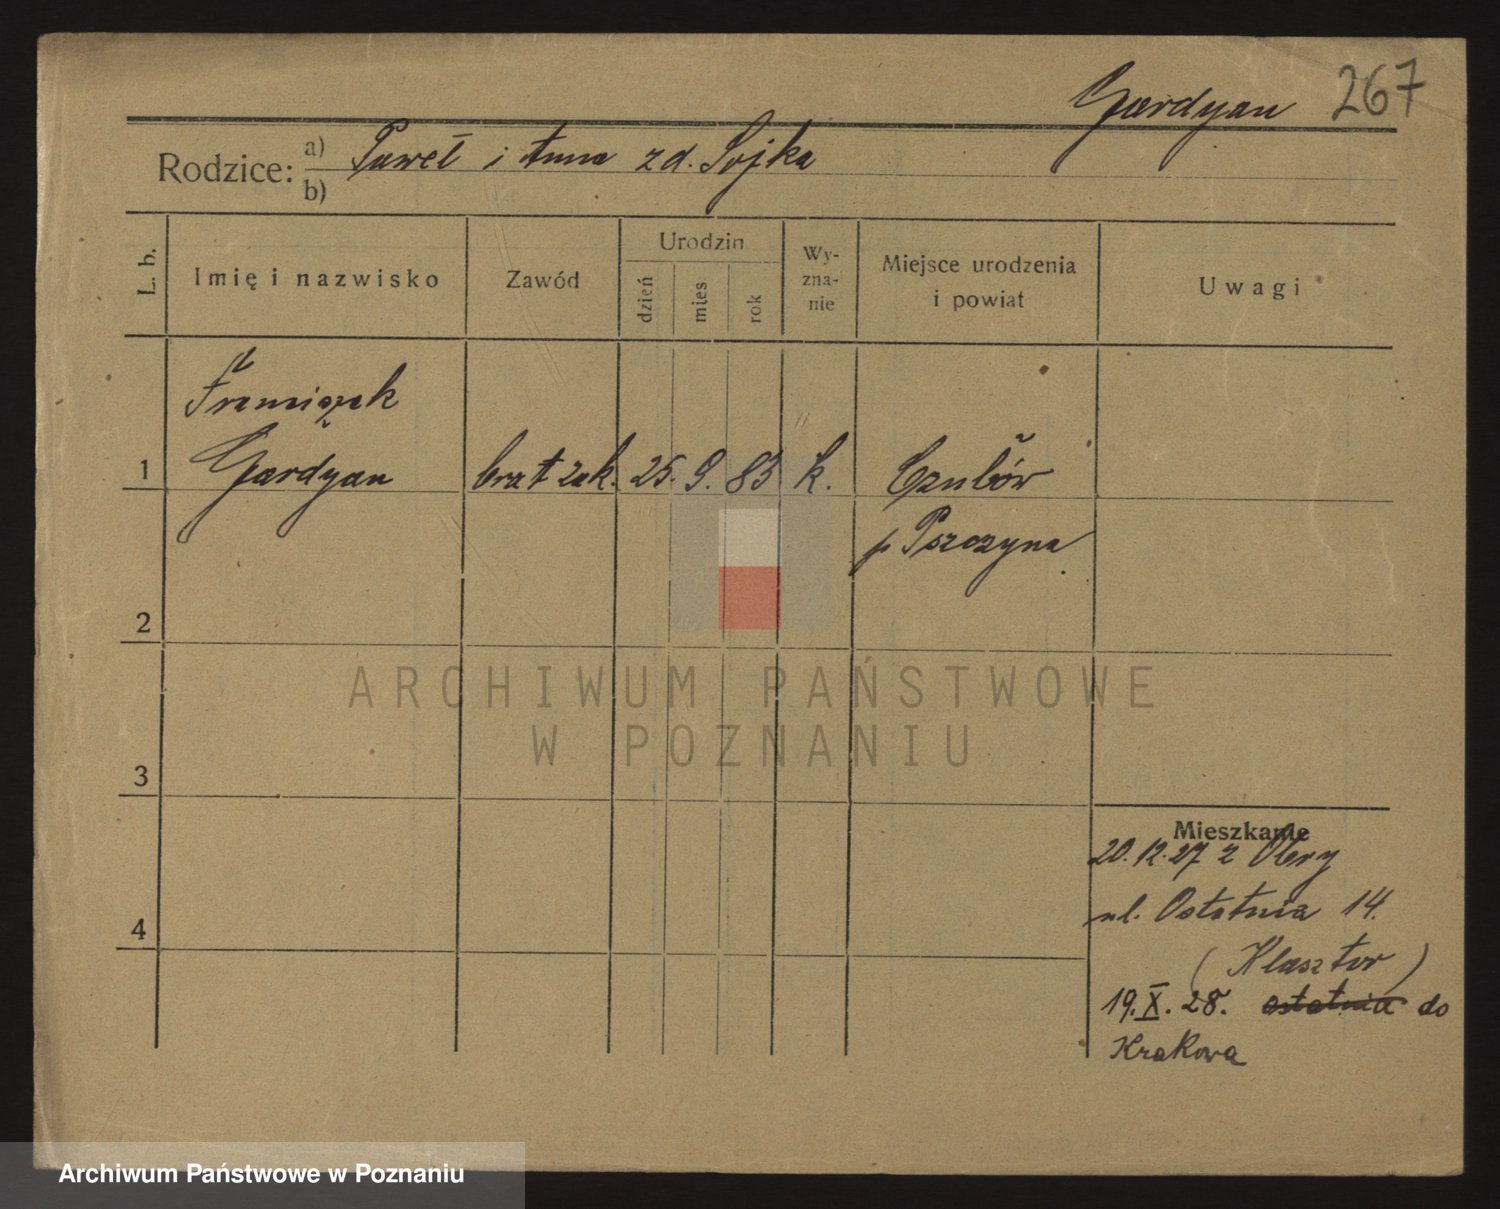 Gardyan 267
Rodzice: a) Paweł i Anna zd. Sojka
b)
L. b. Imię i nazwisko Zawód Urodzin dzień mies rok Wy-zna-nie Miejsce urodzenia i powiat Uwagi
Franciszek
1 Gardyan brat zak. 25. 9. 83 k. Czułów
p Pszczyna
2
3
Mieszkanie
20.12.27 z Obry
ul. Ostatnia 14.
4
(Klasztor)
19.X.28. ostatnia do
Krakowa
ARCHIWUM PAŃSTWOWE
W POZNANIU
Archiwum Państwowe w Poznaniu